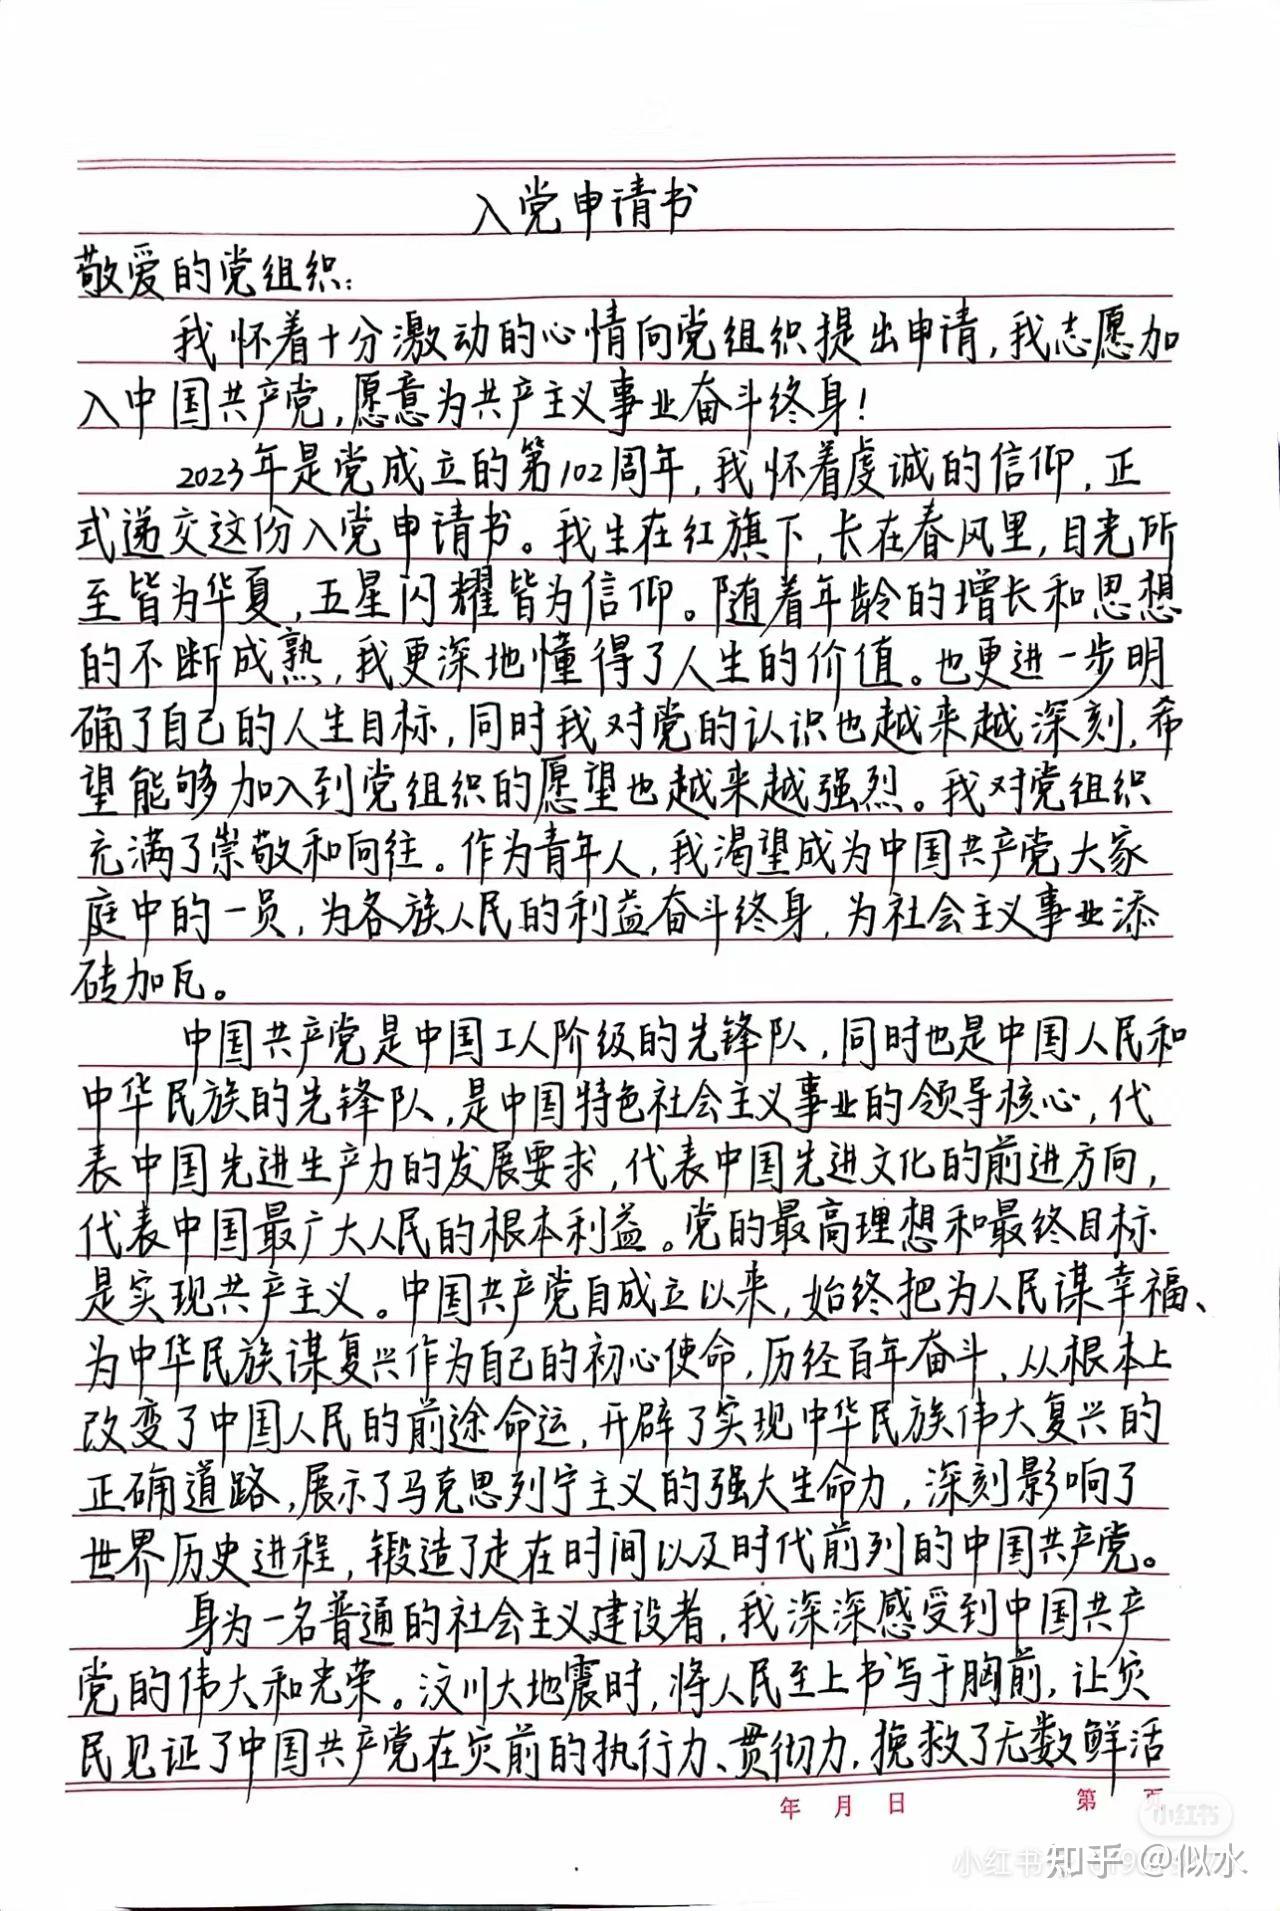 入党申请书
敬爱的党组织:
我怀着十分激动的心情向党组织提出申请,我志愿加
入中国共产党,愿意为共产主义事业奋斗终身!
2023年是党成立的第102周年,我怀着虔诚的信仰,正
式递交这份入党申请书。我生在红旗下,长在春风里,目光所
至皆为华夏,五星闪耀皆为信仰。随着年龄的增长和思想
的不断成熟,我更深地懂得了人生的价值。也更进一步明
确了自己的人生目标,同时我对党的认识也越来越深刻,希
望能够加入到党组织的愿望也越来越强烈。我对党组织
充满了崇敬和向往。作为青年人,我渴望成为中国共产党大家
庭中的一员,为各族人民的利益奋斗终身,为社会主义事业添
砖加瓦。
中国共产党是中国工人阶级的先锋队,同时也是中国人民和
中华民族的先锋队,是中国特色社会主义事业的领导核心,代
表中国先进生产力的发展要求,代表中国先进文化的前进方向,
代表中国最广大人民的根本利益。党的最高理想和最终目标
是实现共产主义。中国共产党自成立以来,始终把为人民谋幸福、
为中华民族谋复兴作为自己的初心使命,历经百年奋斗,从根本上
改变了中国人民的前途命运,开辟了实现中华民族伟大复兴的
正确道路,展示了马克思列宁主义的强大生命力,深刻影响了
世界历史进程,锻造了走在时间以及时代前列的中国共产党。
身为一名普通的社会主义建设者,我深深感受到中国共产
党的伟大和光荣。汶川大地震时,将人民至上书写于胸前,让灾
民见证了中国共产党在灾前的执行力、贯彻力,挽救了无数鲜活
年 月 日 第 页
小红书
知乎 @似水